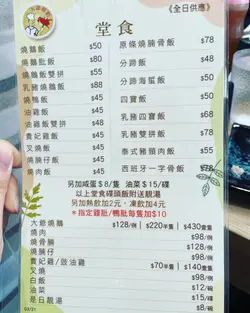 《全日供應》
堂食
燒鵝飯 $50
燒鵝批飯 $80
燒鵝飯雙拼 $55
乳豬燒鵝飯 $65
燒鴨飯 $45
油雞飯 $45
油雞飯雙拼 $55
貴妃雞飯 $45
叉燒飯 $45
燒腩仔飯 $45
燒肉飯 $45
原條燒腩骨飯 $78
分蹄飯 $48
分蹄海蜇飯 $50
四寶飯 $50
乳豬四寶飯 $68
乳豬雙拼飯 $55
泰式豬頸肉飯 $55
西班牙一字骨飯 $78
另加咸蛋$8/隻 油菜$15/碟
以上堂食碟頭飯附送靚湯
另加熱飲加2元，凍飲加4元
*指定雞批/鴨批每隻加$10
大爺燒鵝 $128/例 $220半隻 $430壹隻
燒肉 $98/例
燒骨腩 $98/例
燒腩仔 $98/例
貴妃雞/豉油雞 $70半隻 $140壹隻
叉燒 $98/例
白飯 $8/碗
油菜 $15/碟
是日靚湯 $12/碗